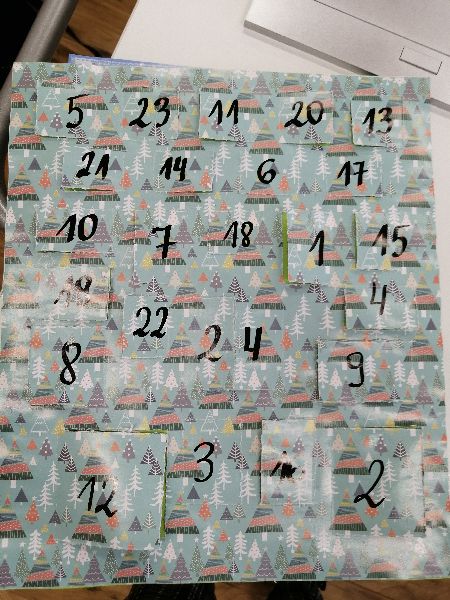 5 23 11 20 13
21 14 6 17
10 7 18 1 15
19 4
22 24
8 9
12 3 2